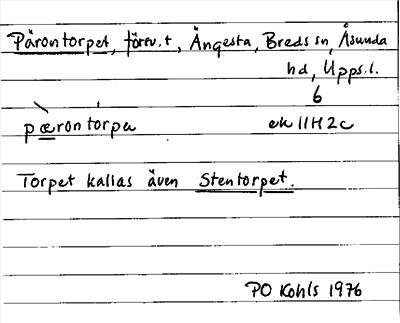 Pärontorpet, förv.t, Ängesta, Breds sn, Åsunda
hd, Upps.l.
6
pærontɔrpa ek 11H2c
Torpet kallas även Stentorpet.
PO Kohls 1976